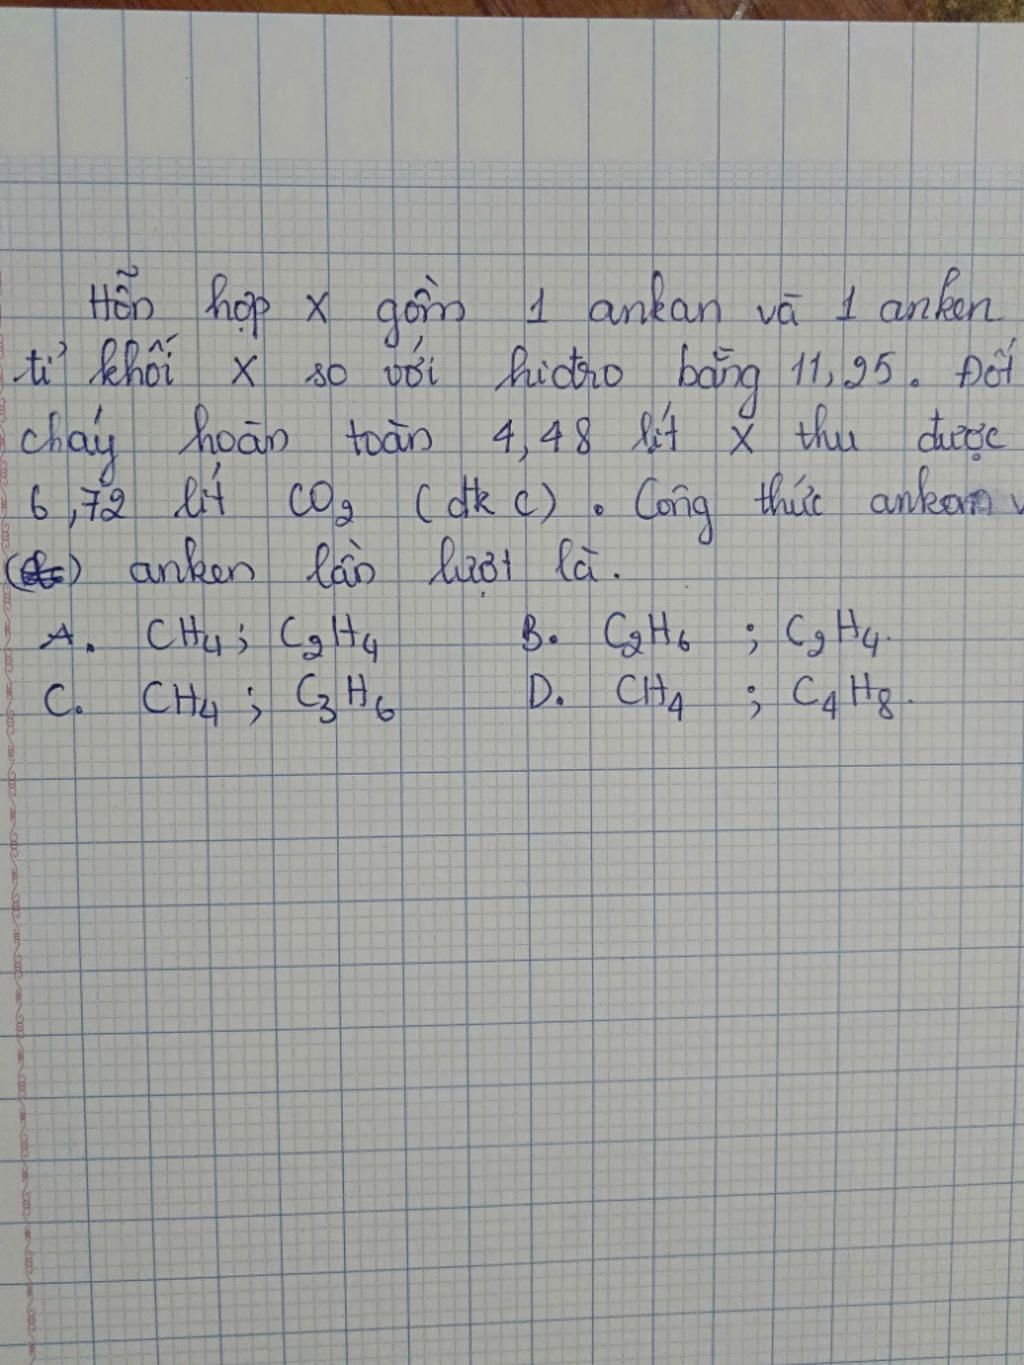 Hỗn hợp X gồm 1 ankan và 1 anken
tỉ khối X so với hidro bằng 11,25. Đốt
cháy hoàn toàn 4,48 lít X thu được
6,72 lít CO2 (đk c). Công thức ankan v
anken lần lượt là.
A. CH4; C2H4 B. C2H6 ; C2H4.
C. CH4; C3H6 D. CH4 ; C4H8.